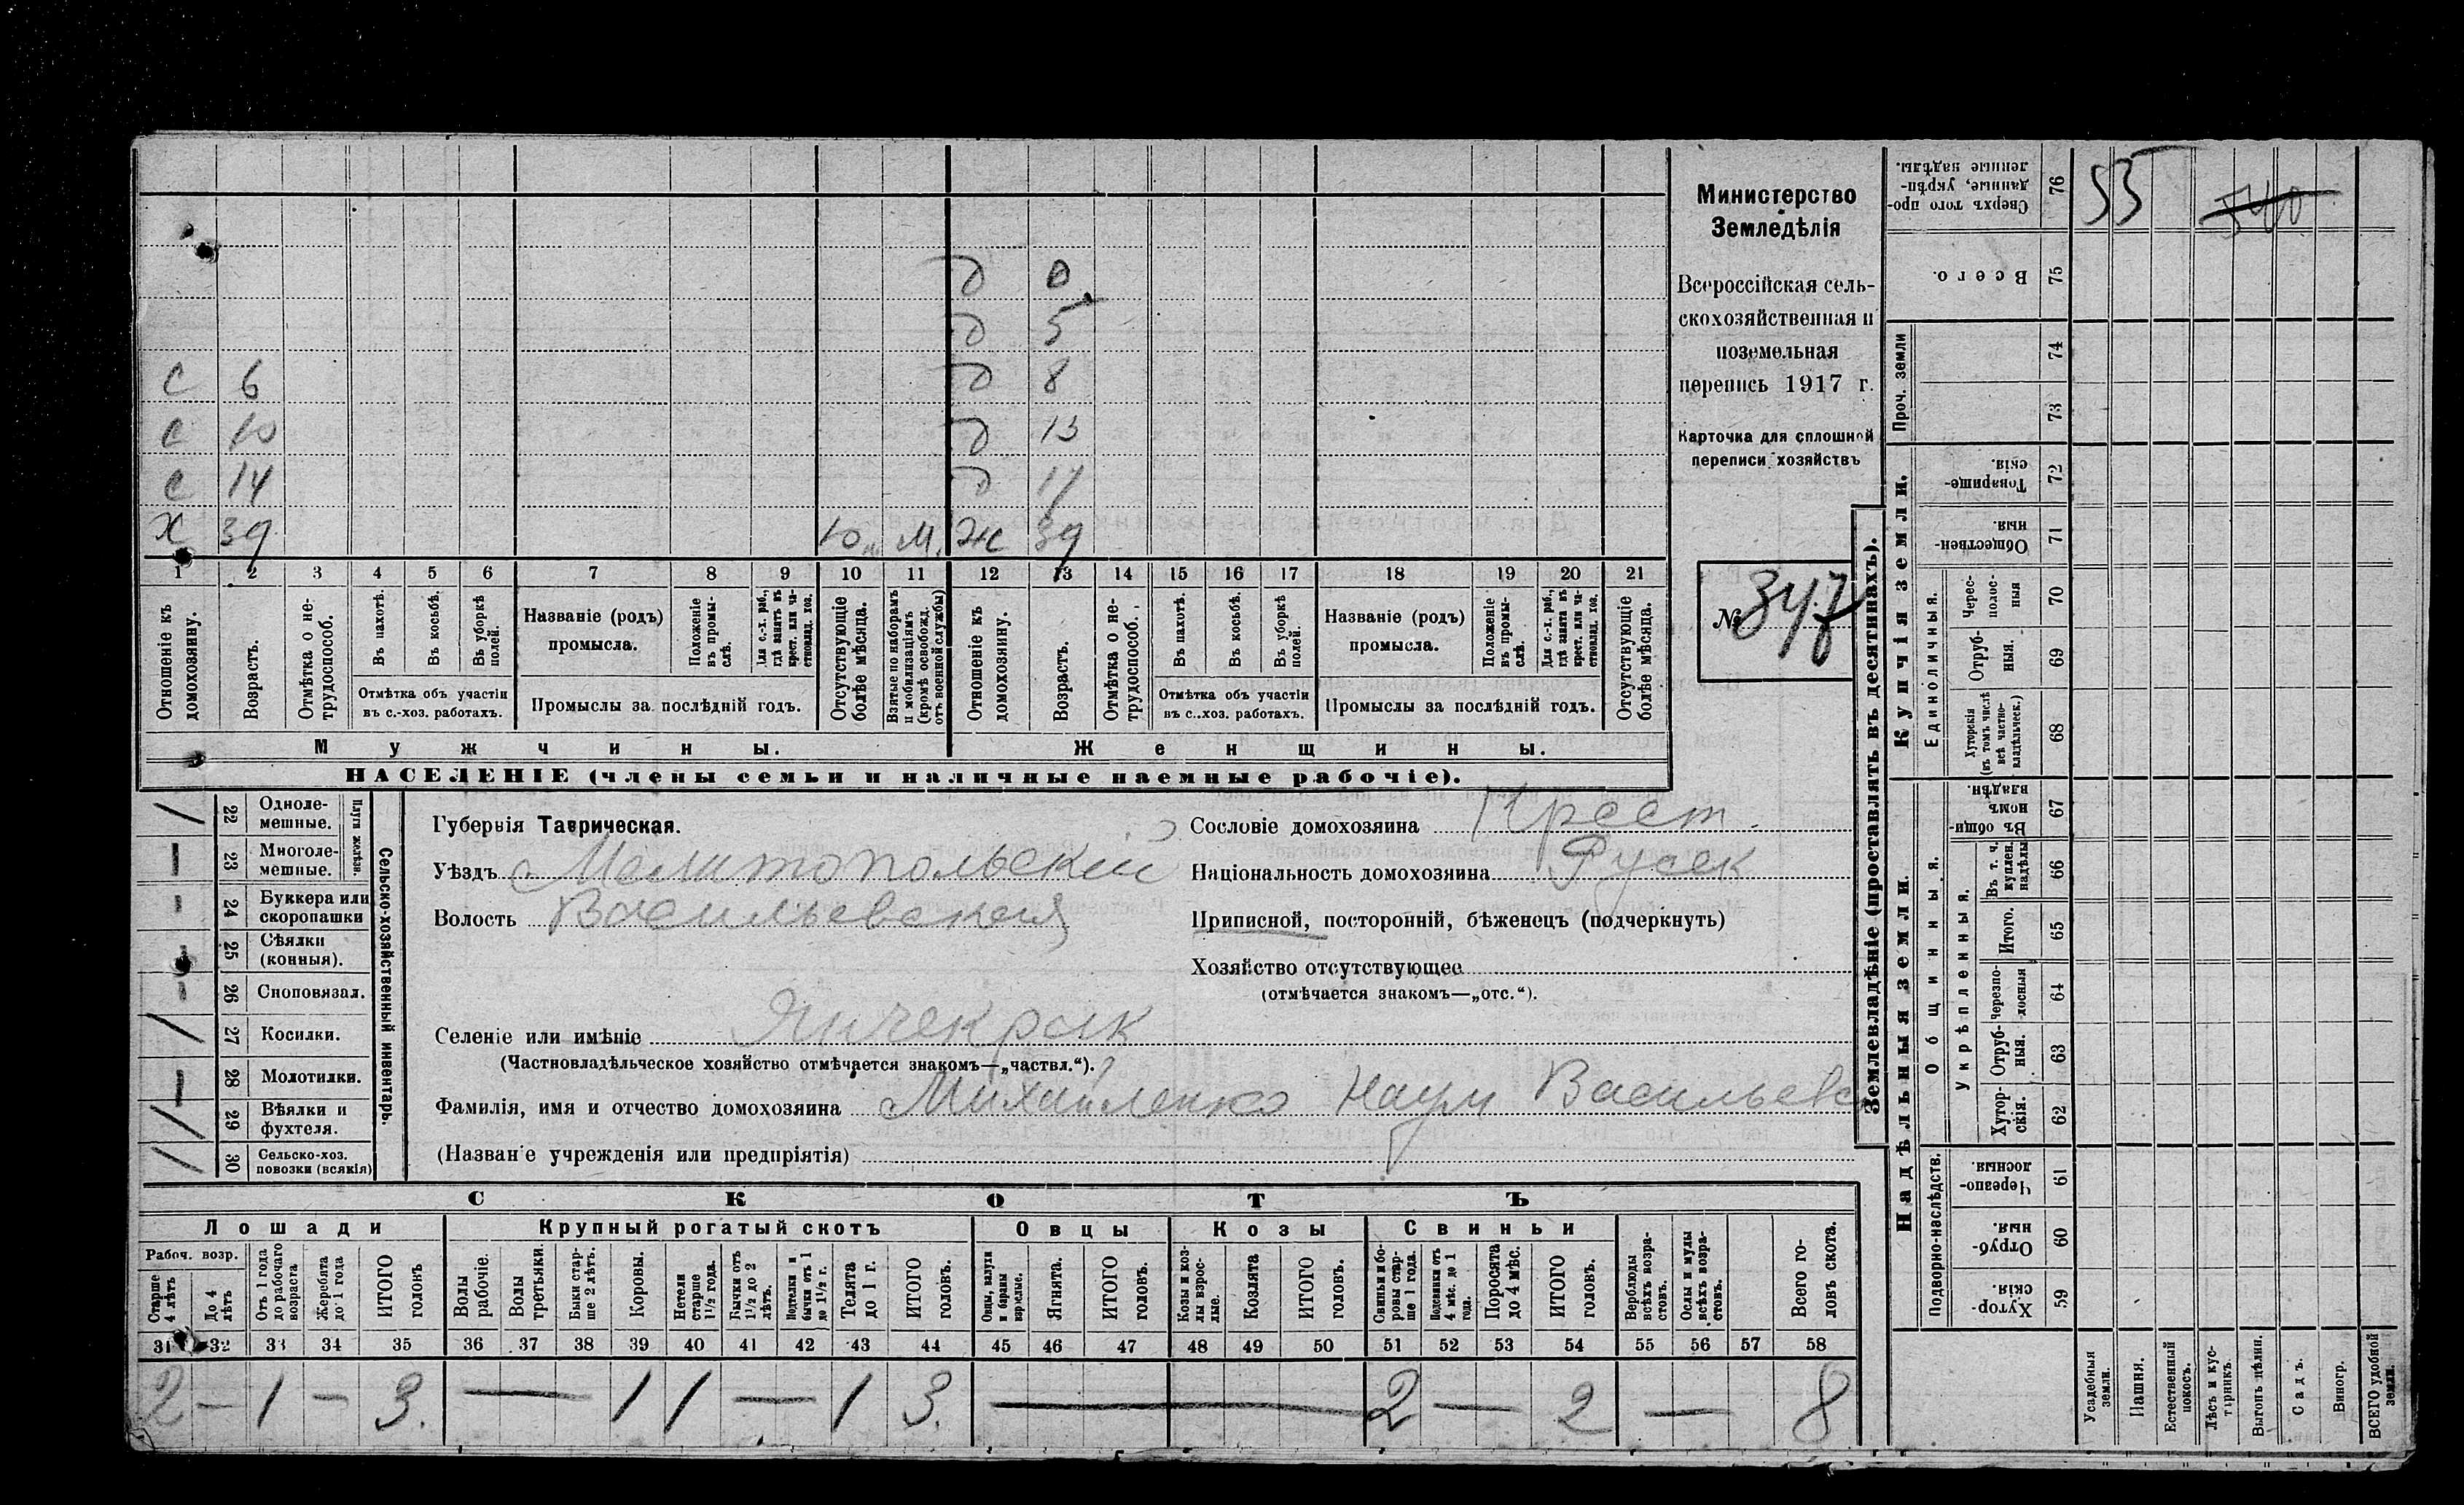 Министерство
Земледѣлія
Всероссійская сель-
скохозяйственная и
поземельная
перепись 1917 г.
Карточка для сплошной
переписи хозяйствъ
№ 347
д 0
д 5
с 6 д 8
с 10 д 13
с 14 д 17
х 39 М. Ж 39
1 2 3 4 5 6 7 8 9 10 11 12 13 14 15 16 17 18 19 20 21
Отношеніе къ домохозяину.
Возрастъ.
Отмѣтка о не-трудоспособ.
Въ пахотѣ.
Въ косьбѣ.
Въ уборкѣ полей.
Отмѣтка объ участіи
въ с.-хоз. работахъ.
Названіе (родъ)
промысла.
Положеніе въ промы-слѣ.
Для с.-х. раб., гдѣ занятъ въ крест. или ча-стновлад. хоз.
Промыслы за послѣдній годъ.
Отсутствующіе болѣе мѣсяца.
Взятые по наборамъ и мобилизаціямъ (кромѣ освобожд. отъ военной службы)
Отношеніе къ домохозяину.
Возрастъ.
Отмѣтка о не-трудоспособ.
Въ пахотѣ.
Въ косьбѣ.
Въ уборкѣ полей.
Отмѣтка объ участіи
въ с.-хоз. работахъ.
Названіе (родъ)
промысла.
Положеніе въ промы-слѣ.
Для с.-х. раб., гдѣ занятъ въ крест. или ча-стновлад. хоз.
Промыслы за послѣдній годъ.
Отсутствующіе болѣе мѣсяца.
Мужчины. Женщины.
НАСЕЛЕНІЕ (члены семьи и наличные наемные рабочіе).
Сельско-хозяйственный инвентарь.
Плуги желѣзн.
/ 22 Одноле-мешные.
/ 23 Многоле-мешные.
- 24 Буккера или скоропашки
- 25 Сѣялки (конныя).
- 26 Сноповязал.
/ 27 Косилки.
- 28 Молотилки.
/ 29 Вѣялки и фухтеля.
/ 30 Сельско-хоз. повозки (всякія)
Губернія Таврическая.
Уѣздъ Мелитопольский
Волость Васильевская
Селеніе или имѣніе Янчекрак
(Частновладѣльческое хозяйство отмѣчается знакомъ—„частвл.“).
Фамилія, имя и отчество домохозяина Михайленко Наум Васильев
(Названіе учрежденія или предпріятія)
Сословіе домохозяина Крест.
Національность домохозяина Русск
Приписной, посторонній, бѣженецъ (подчеркнуть)
Хозяйство отсутствующее
(отмѣчается знакомъ—„отс.“).
СКОТЪ
Лошади Крупный рогатый скотъ Овцы Козы Свиньи
Рабоч. возр.
Старше 4 лѣтъ
До 4 лѣтъ
Отъ 1 года до рабочаго возраста
Жеребята до 1 года
ИТОГО головъ
Волы рабочіе.
Волы третьяки.
Быки стар-ше 2 лѣтъ.
Коровы.
Нетели старше 1½ года.
Бычки отъ 1½ до 2 лѣтъ.
Подтелки и бычки отъ 1 до 1½ г.
Телята до 1 г.
ИТОГО головъ.
Овцы, валухи и бараны взрослые.
Ягнята.
ИТОГО головъ.
Козы и коз-лы взрос-лые.
Козлята
ИТОГО головъ.
Свиньи и бо-ровы стар-ше 1 года.
Подсвинки отъ 4 мѣс. до 1 года.
Поросята до 4 мѣс.
ИТОГО головъ.
Верблюды всѣхъ возра-стовъ.
Ослы и мулы всѣхъ возра-стовъ.
Всего го-ловъ скота.
31 32 33 34 35 36 37 38 39 40 41 42 43 44 45 46 47 48 49 50 51 52 53 54 55 56 57 58
2 — 1 — 3. — 1 1 — 1 3. — 2 — 2 — 8
Землевладѣніе (проставлять въ десятинахъ).
Купчія земли.
Надѣльныя земли.
76 Сверхъ того про-данные, укрѣп-ленные надѣлы. 53 540
75 Всего.
Проч. земли
74
73
72 Товарище-скія.
71 Обществен-ныя.
Единоличныя.
70 Черес-полос-ныя
69 Отруб-ныя.
68 Хуторскія (въ томъ числѣ всѣ частно-владѣльческ.)
Общинныя.
67 Въ общин-номъ владѣн.
Укрѣпленныя.
66 Въ т. ч. куплен. надѣлы
65 Итого.
64 Черезпо-лосныя
63 Отруб-ныя.
62 Хутор-скія.
Подворно-наслѣдств.
61 Черезпо-лосныя.
60 Отруб-ныя.
59 Хутор-скія.
Усадебныя земли.
Пашня.
Естественный покосъ.
Лѣсъ и кус-тарникъ.
Выгонъ цѣлин.
Садъ.
Виногр.
ВСЕГО удобной земли.